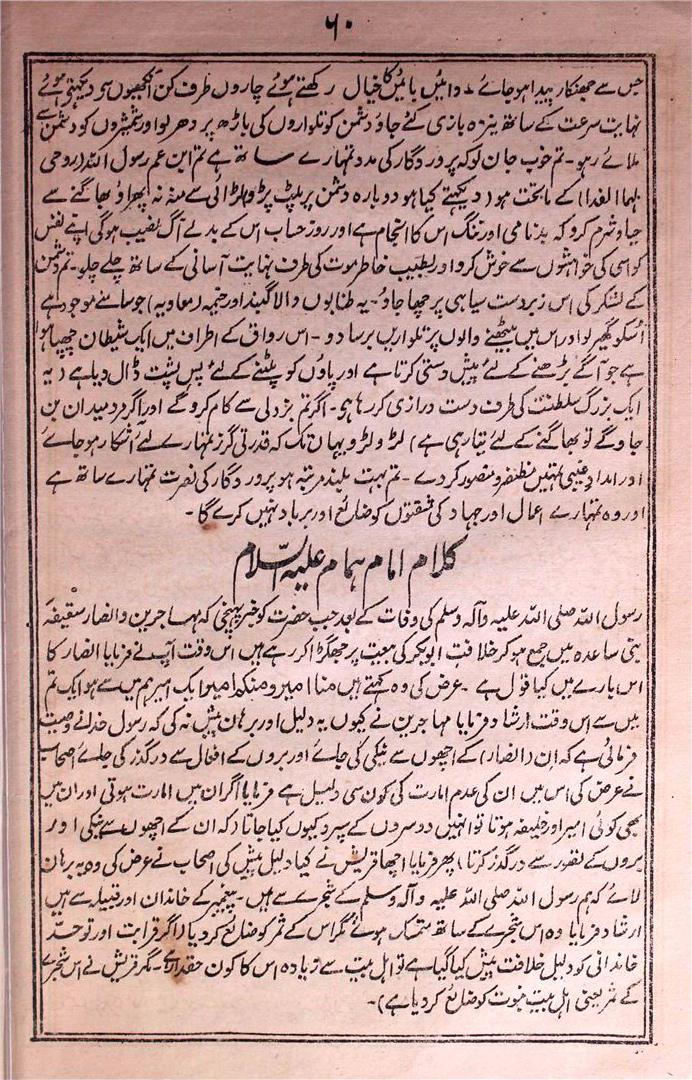 ۶۰
جس سے جھنکار پیدا ہو جائے ۔ دائیں بائیں کا خیال رکھتے ہوئے چاروں طرف کن آنکھیوں سے دیکھتے ہوئے
نہایت سرعت کے ساتھ نیزہ بازی کئے جاؤ دشمن کو تلواروں کی باڑھ پر دھر لو اور شمشیروں کو دشمن سے
ملائے رہو ۔ تم خوب جان لو کہ پروردگار کی مدد تمہارے ساتھ ہے تم ابن عم رسول اللہ (روحی
لہما الفدا) کے ماتحت ہو (دیکھتے کیا ہو دوبارہ دشمن پر پلٹ پڑو لڑائی سے منہ نہ پھراؤ بھاگنے سے
حیا و شرم کرو کہ بدنامی اور ننگ اس کا انجام ہے اور روز حساب اس کے بدلے آگ نصیب ہوگی اپنے نفس
کو اسی کی خواہشوں سے خوش کرو اور بطیب خاطر موت کی طرف نہایت آسانی کے ساتھ چلے چلو ۔ تم دشمن
کے لشکر کی اس زبردست سیاہی پر چھا جاؤ ۔ یہ طنابوں والا گنبد اور خیمہ (معاویہ) جو سامنے موجود ہے
اُسکو گھیر لو اور اس میں بیٹھنے والوں پر تلواریں برسا دو ۔ اس رواق کے اطراف میں ایک شیطان چھپا ہوا
ہے جو آگے بڑھنے کے لئے پیش دستی کرتا ہے اور پاؤں کو پلٹنے کے لئے پس پشت ڈال دیا ہے (یہ
ایک بزرگ سلطنت کی طرف دست درازی کر رہا ہی ۔ اگر تم بزدلی سے کام کرو گے اور اگر مرد میدان بن
جاؤ گے تو بھاگنے کے لئے تیار ہی ہے) لڑو لڑو یہاں تک کہ قدرتی گرز تمہارے لئے آشکار ہو جائے
اور امداد غیبی تمہیں مظفر و منصور کر دے ۔ تم بہت بلند مرتبہ ہو پروردگار کی نصرت تمہارے ساتھ ہے
اور وہ تمہارے اعمال اور جہاد کی مشقتوں کو ضائع اور برباد نہیں کرے گا ۔
کلام امام ہمام علیہ السلام
رسول اللہ صلی اللہ علیہ وآلہ وسلم کی وفات کے بعد جب حضرت کو خبر پہنچی کہ مہاجرین و انصار سقیفہ
بنی ساعدہ میں جمع ہو کر خلافت ابوبکر کی بیعت پر جھگڑا کر رہے ہیں اس وقت آپ نے فرمایا انصار کا
اس بارے میں کیا قول ہے ۔ عرض کی وہ کہتے ہیں منا امیر و منکم امیر ایک امیر ہم میں سے ہو ایک تم
میں سے اس وقت ارشاد فرمایا مہاجرین نے کیوں یہ دلیل اور برہان پیش نہ کی کہ رسول خدا نے وصیت
فرمائی ہے کہ اِن (انصار) کے اچھوں سے نیکی کی جائے اور بروں کے افعال سے درگذر کی جائے اصحاب
نے عرض کی اس میں ان کی عدم امارت کی کون سی دلیل ہے فرمایا اگر ان میں امارت ہوتی اور ان میں
بھی کوئی امیر اور خلیفہ ہوتا تو انہیں دوسروں کے سپرد کیوں کیا جاتا (کہ ان کے اچھوں سے نیکی اور
بروں کے قصور سے درگذر کرنا) پھر فرمایا اچھا قریش نے کیا دلیل پیش کی اصحاب نے عرض کی وہ یہ برہان
لائے کہ ہم رسول اللہ صلی اللہ علیہ وآلہ وسلم کے شجرے سے ہیں ۔ پیغمبر کے خاندان اور قبیلہ سے ہیں
ارشاد فرمایا وہ اس شجرے کے ساتھ متمسک ہوئے مگر اس کے ثمر کو ضائع کر دیا (اگر قرابت اور توحد
خاندانی کو دلیل خلافت پیش کیا گیا ہے تو اہل بیت سے زیادہ اس کا کون حقدار ہے ۔ مگر قریش نے اس شجرے
کے ثمر یعنی اہل بیت نبوت کو ضائع کر دیا ہے) ۔